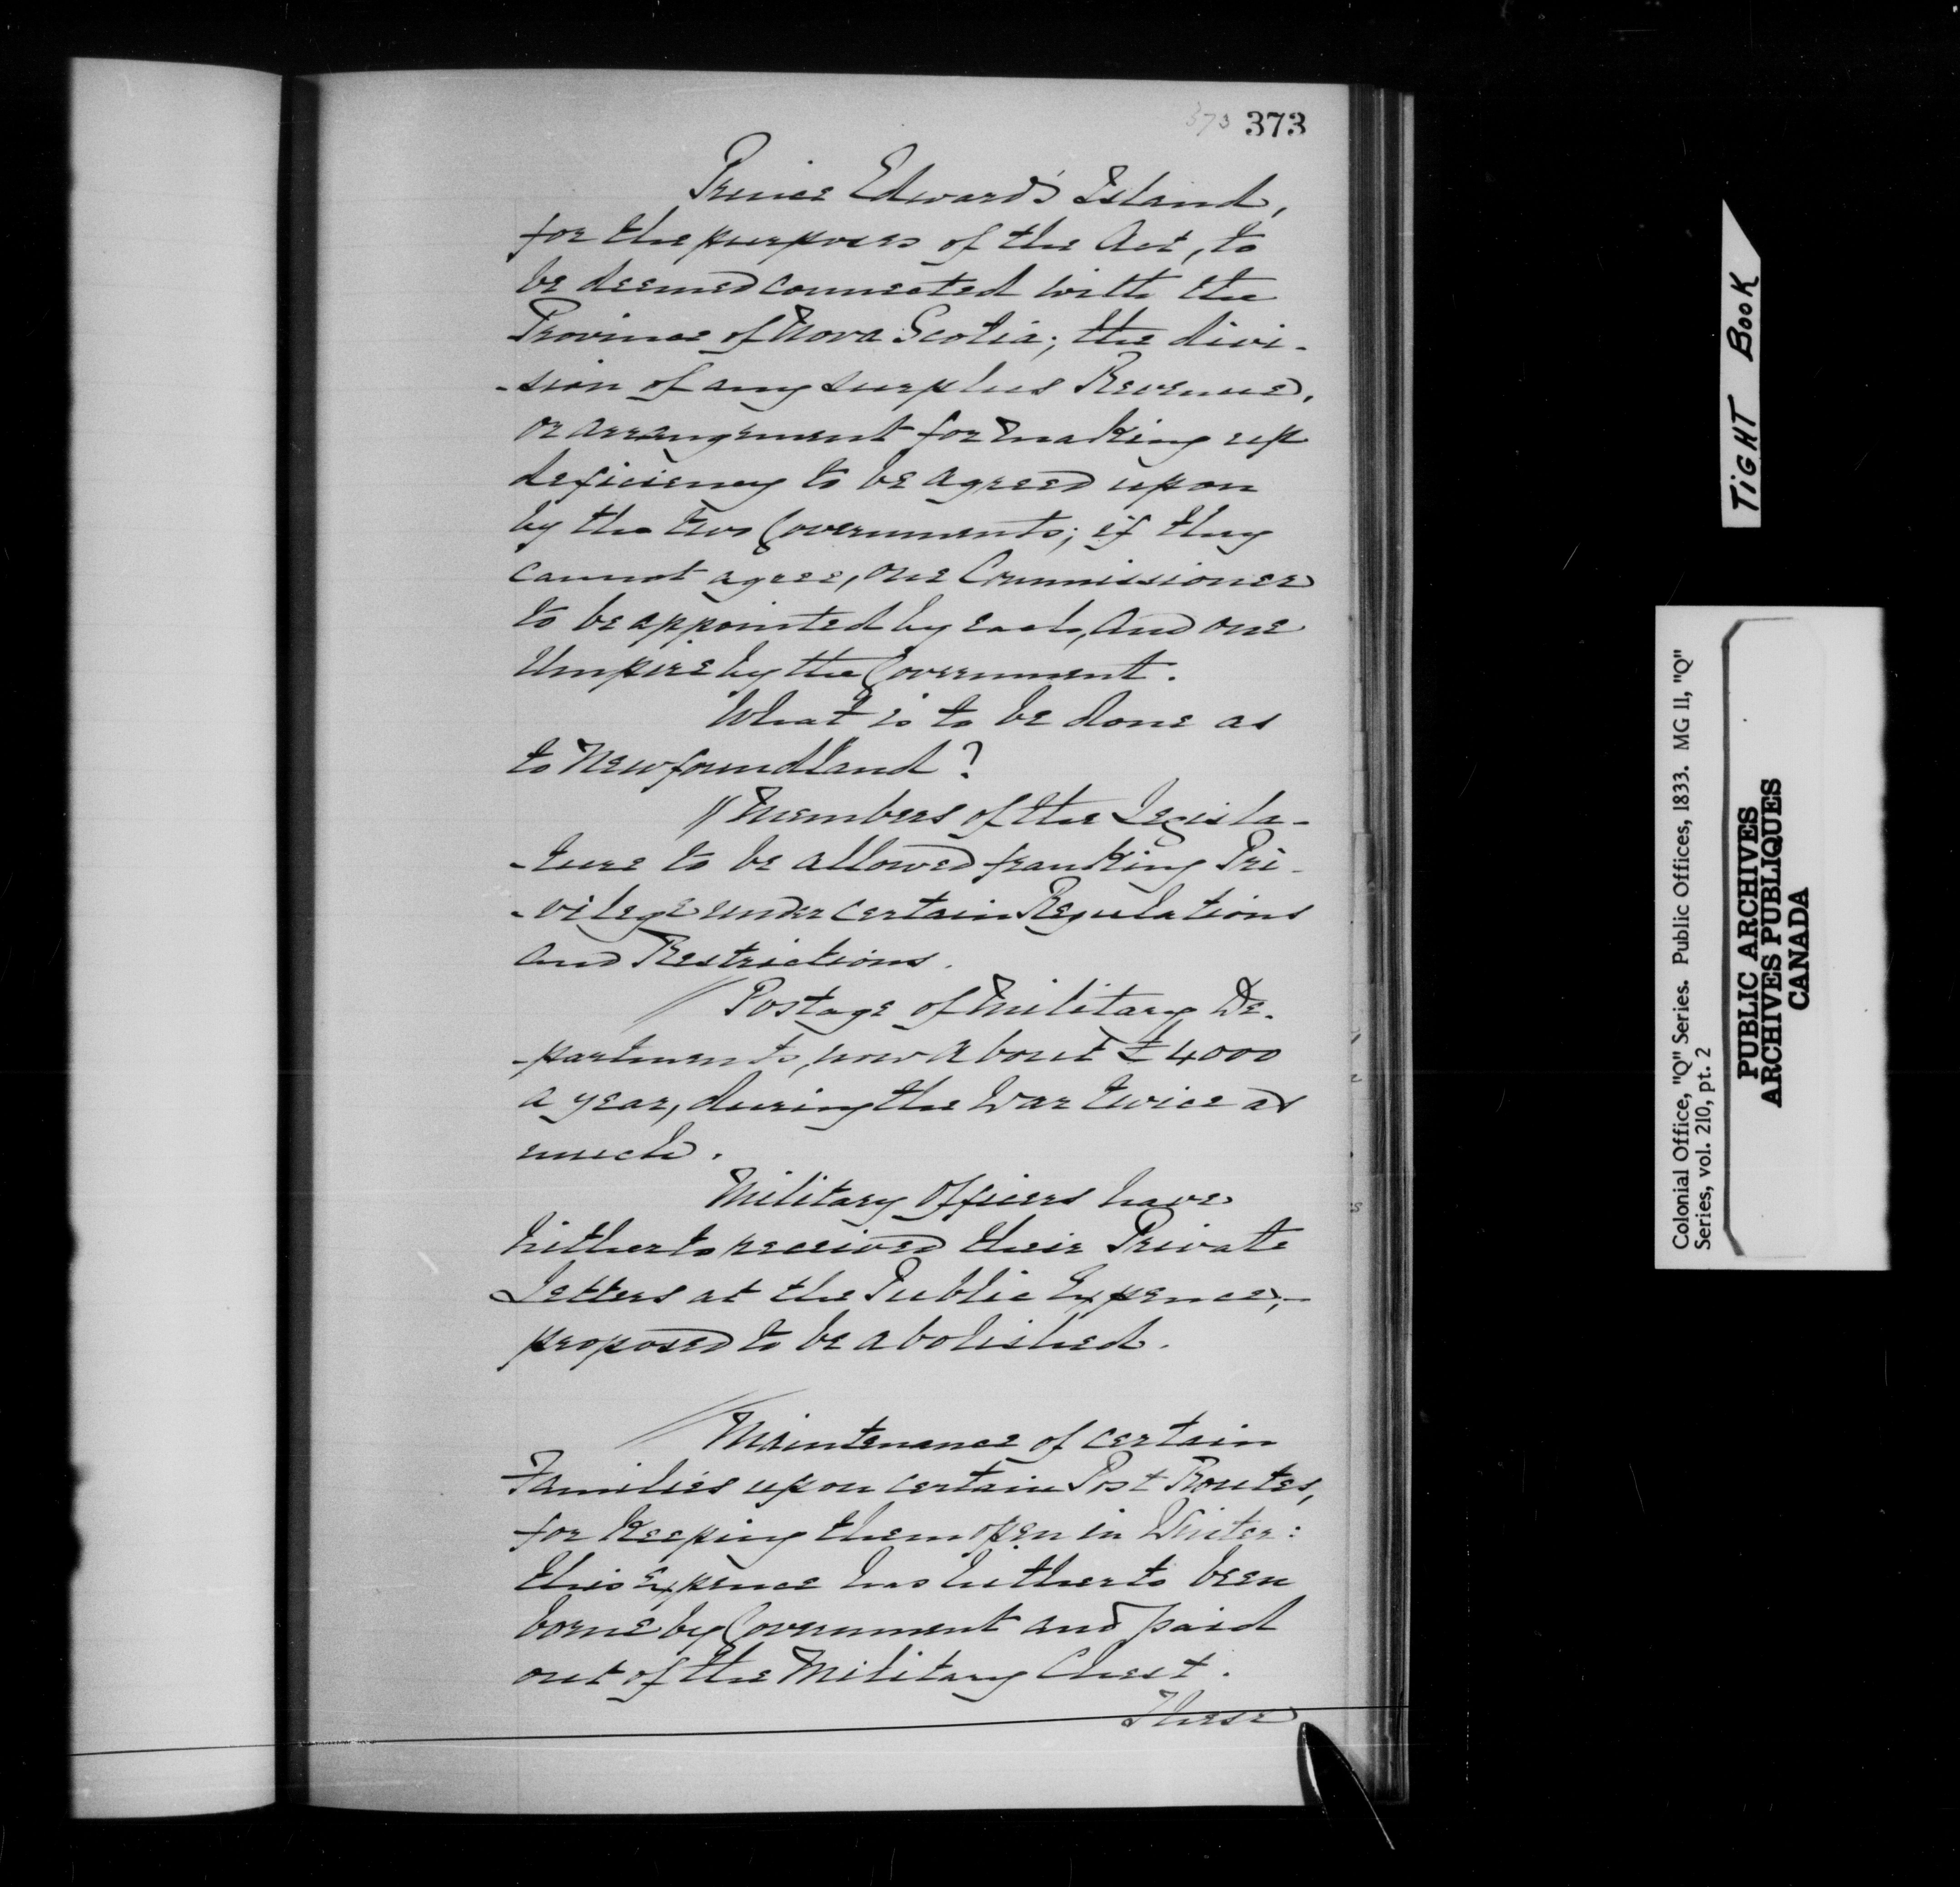 373 373
Prince Edward's Island,
for the purposes of the Act, to
be deemed connected with the
Province of Nova Scotia; the divi-
-sion of any surplus Revenue,
or arrangement for making up
deficiency to be agreed upon
by the two Governments; if they
cannot agree, one Commissioner
to be appointed by each, and one
Umpire by the Government.
What is to be done as
to Newfoundland?
// Members of the Legisla-
-ture to be allowed franking Pri-
-vilege under certain Regulations
and Restrictions.
// Postage of Military De-
-partments, now about £4000
a year, during the War twice as
much.
Military Officers have
hitherto received their Private
Letters at the Public Expence;-
proposed to be abolished.
// Maintenance of certain
Families upon certain Post Routes,
for keeping them open in Winter:
this Expence has hitherto been
borne by Government and paid
out of the Military Chest.
These
TIGHT BOOK
Colonial Office, "Q" Series. Public Offices, 1833. MG 11, "Q"
Series, vol. 210, pt. 2
PUBLIC ARCHIVES
ARCHIVES PUBLIQUES
CANADA